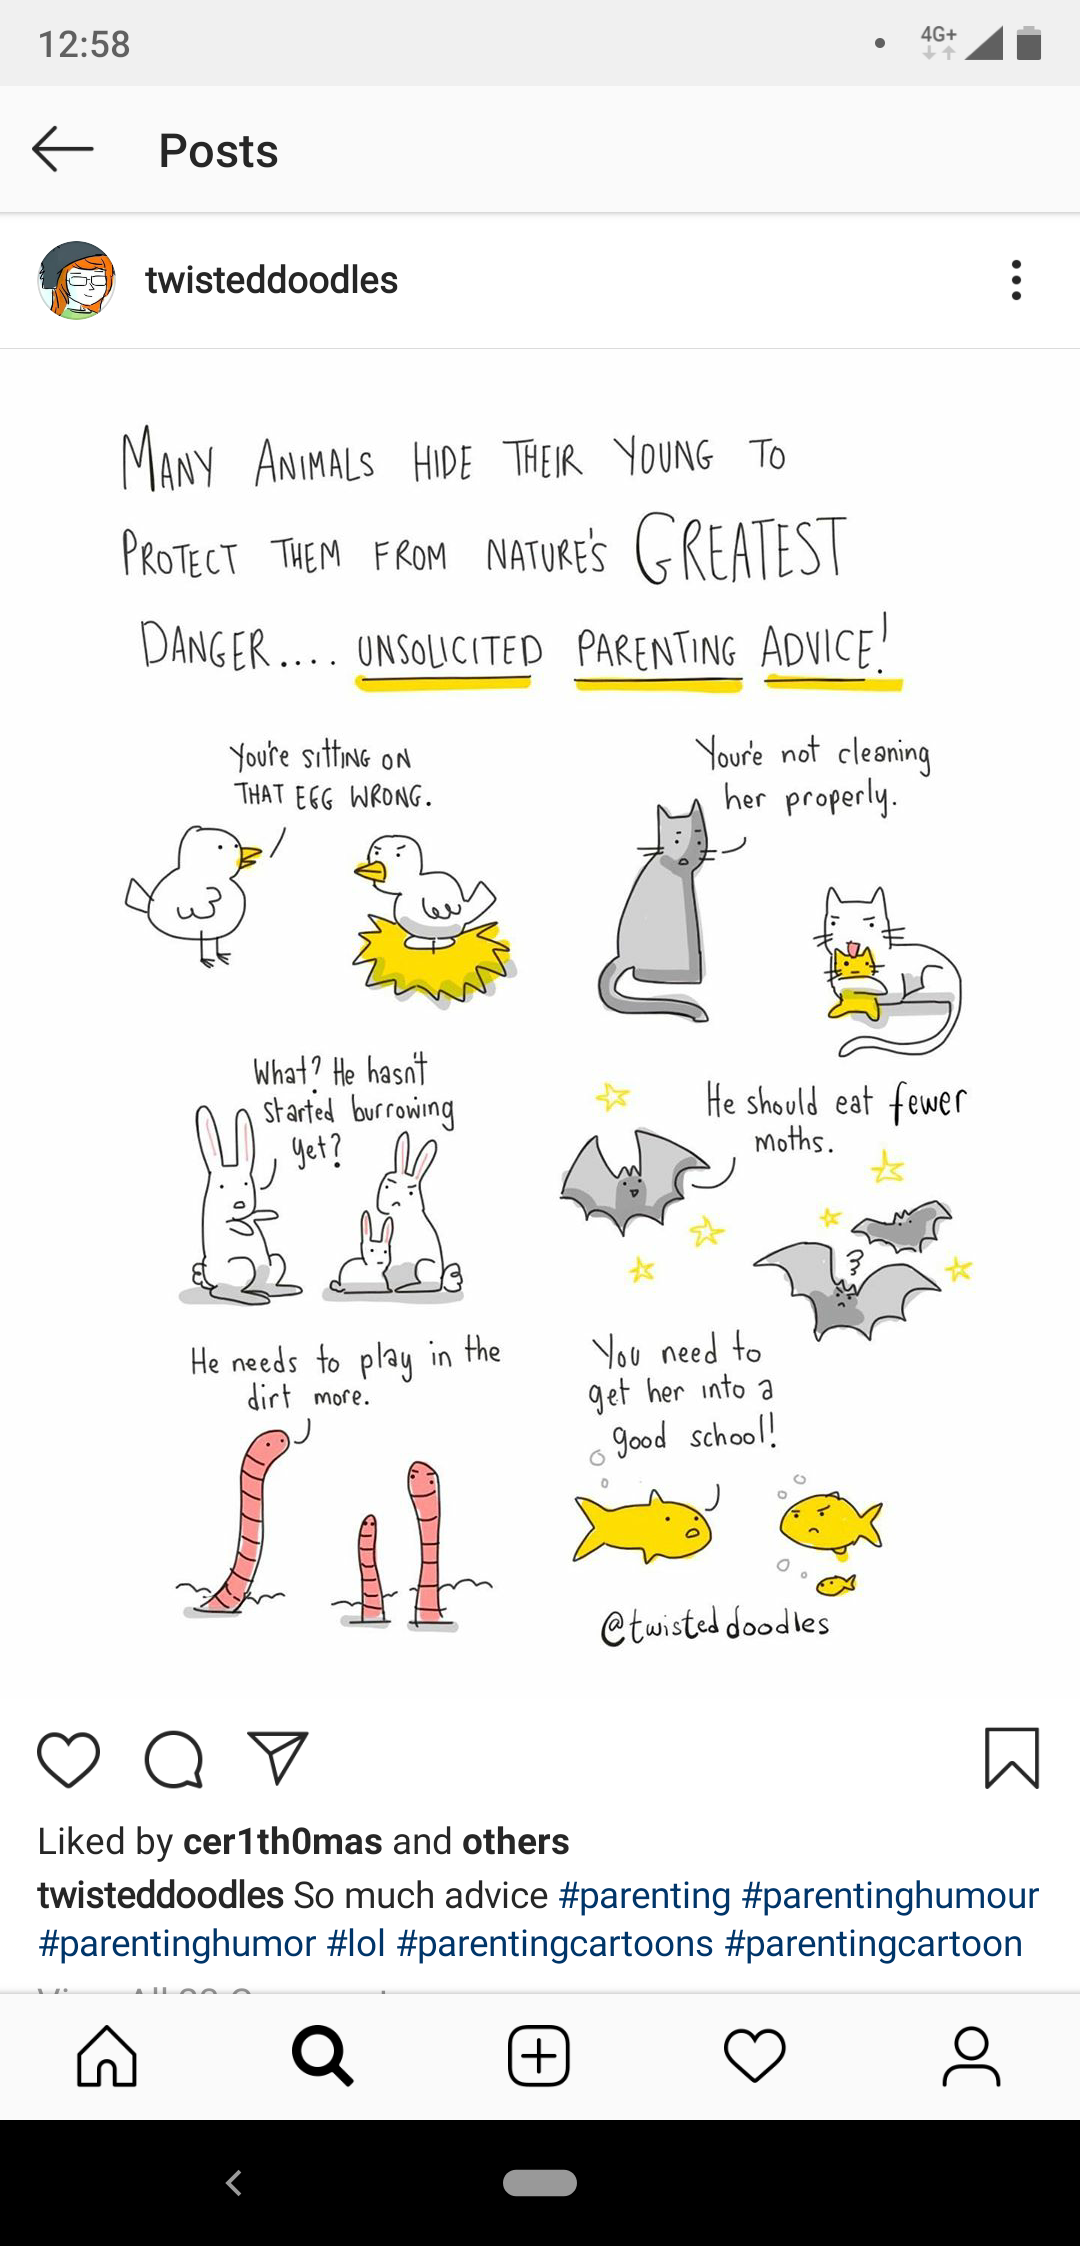 12:58
4G+
Posts
twisteddoodles
MANY ANIMALS HIDE THEIR YOUNG TO
PROTECT THEM FROM NATURE'S GREATEST
DANGER.... UNSOLICITED PARENTING ADVICE!
You're sitting on
THAT EGG WRONG.
You're not cleaning
her properly.
What? He hasn't
started burrowing
yet?
He should eat fewer
moths.
He needs to play in the
dirt more.
You need to
get her into a
good school!
@twisteddoodles
Liked by cer1th0mas and others
twisteddoodles So much advice #parenting #parentinghumour
#parentinghumor #lol #parentingcartoons #parentingcartoon